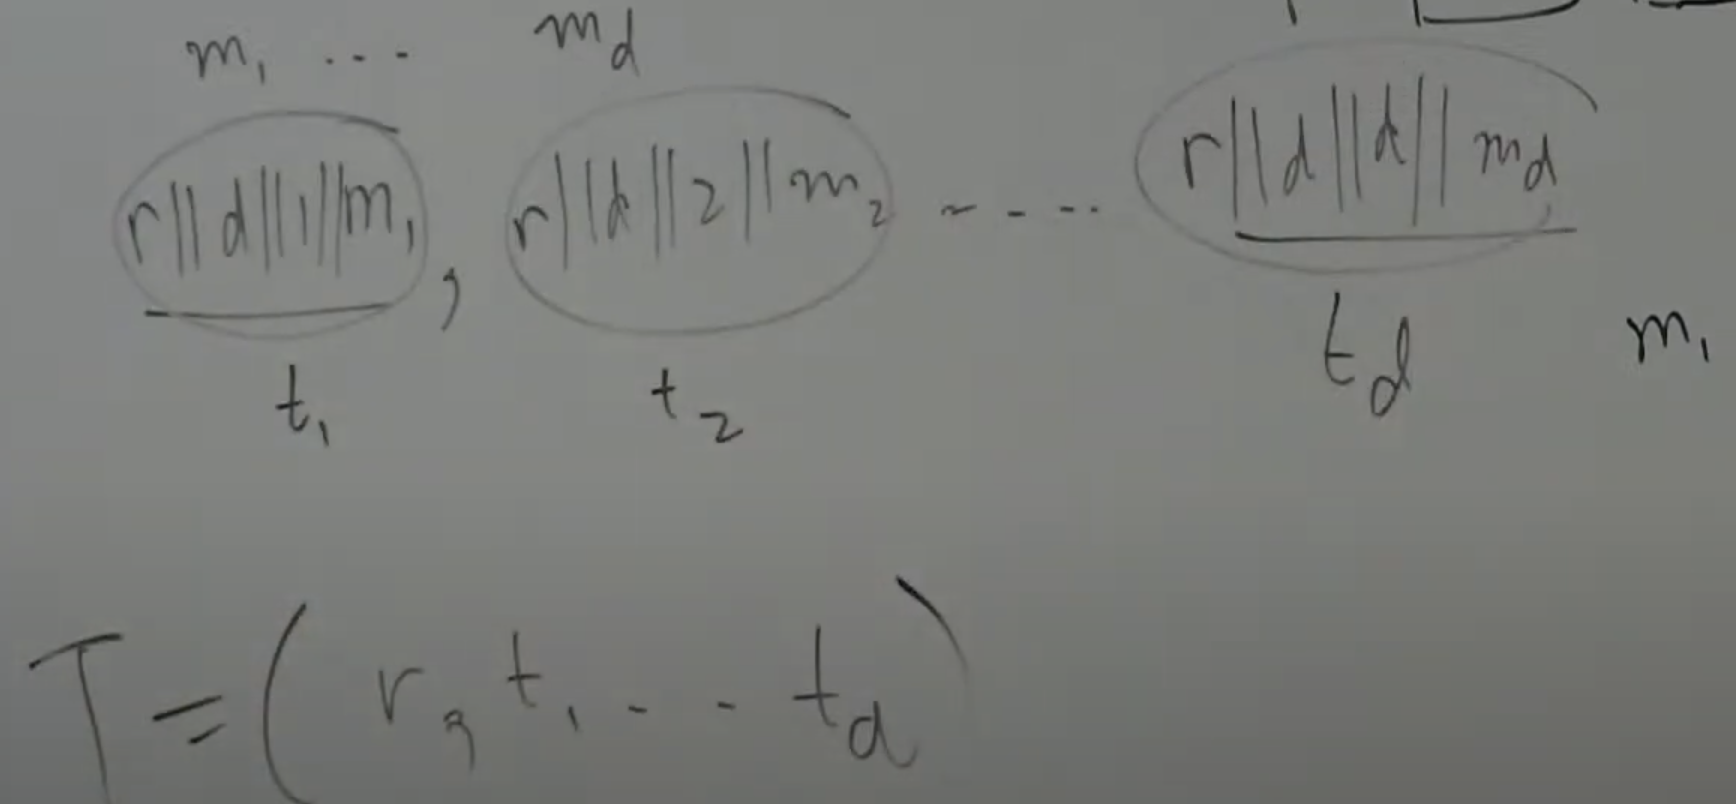 m₁ ... m_d
r||d||1||m₁ , r||d||2||m₂ ---- r||d||d||m_d
t₁ t₂ t_d m₁
T = (r, t₁ -- t_d)